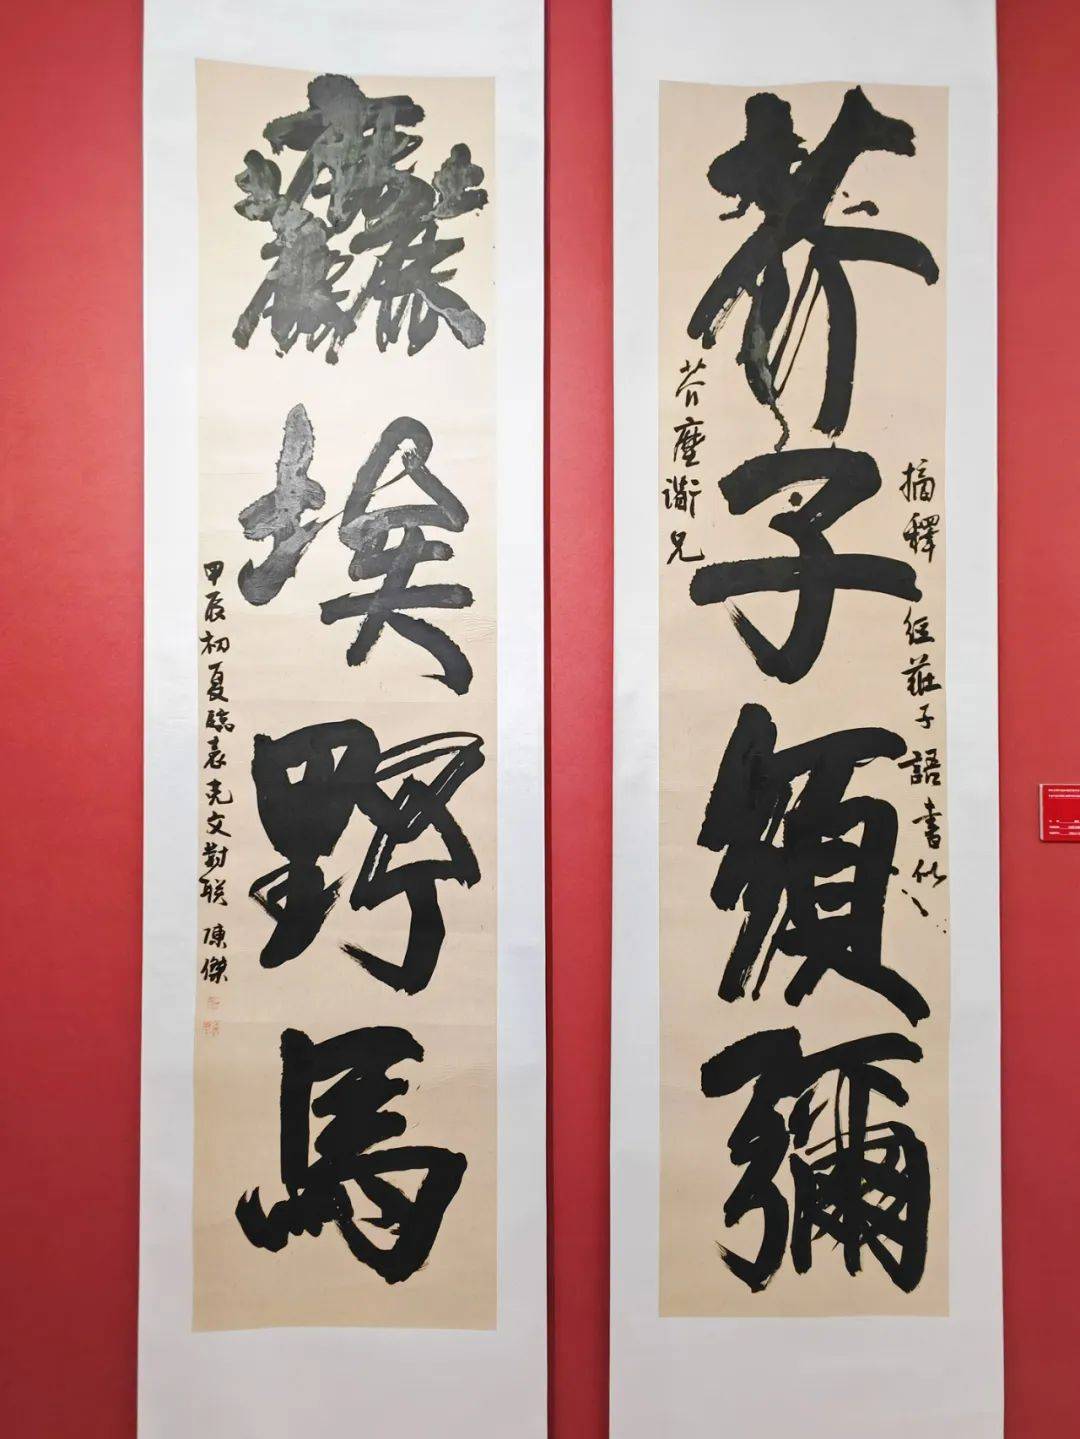 摘釋經莊子語書似
芥子須彌
芥塵衜兄
𪋻埃野馬
甲辰初夏臨袁克文對联 陳傑